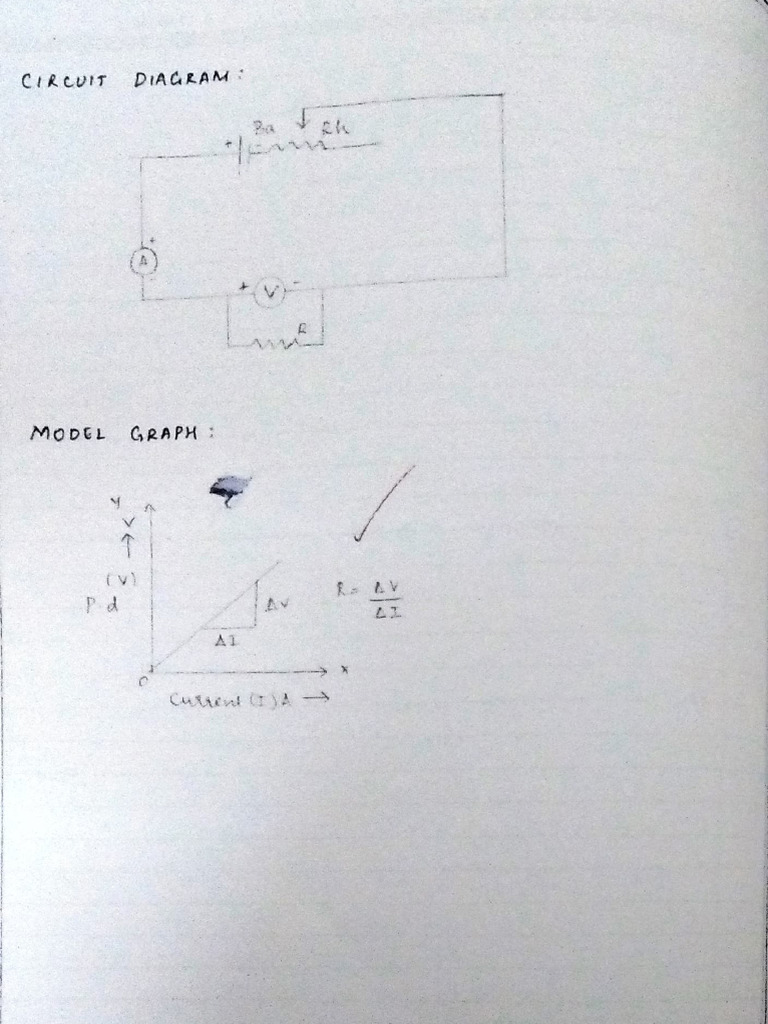 CIRCUIT DIAGRAM:
Ba Rh
+
+
A
+ V -
R
MODEL GRAPH:
Y
V
(V)
P d
ΔV
ΔI
R = ΔV
ΔI
O
X
Current (I) A →